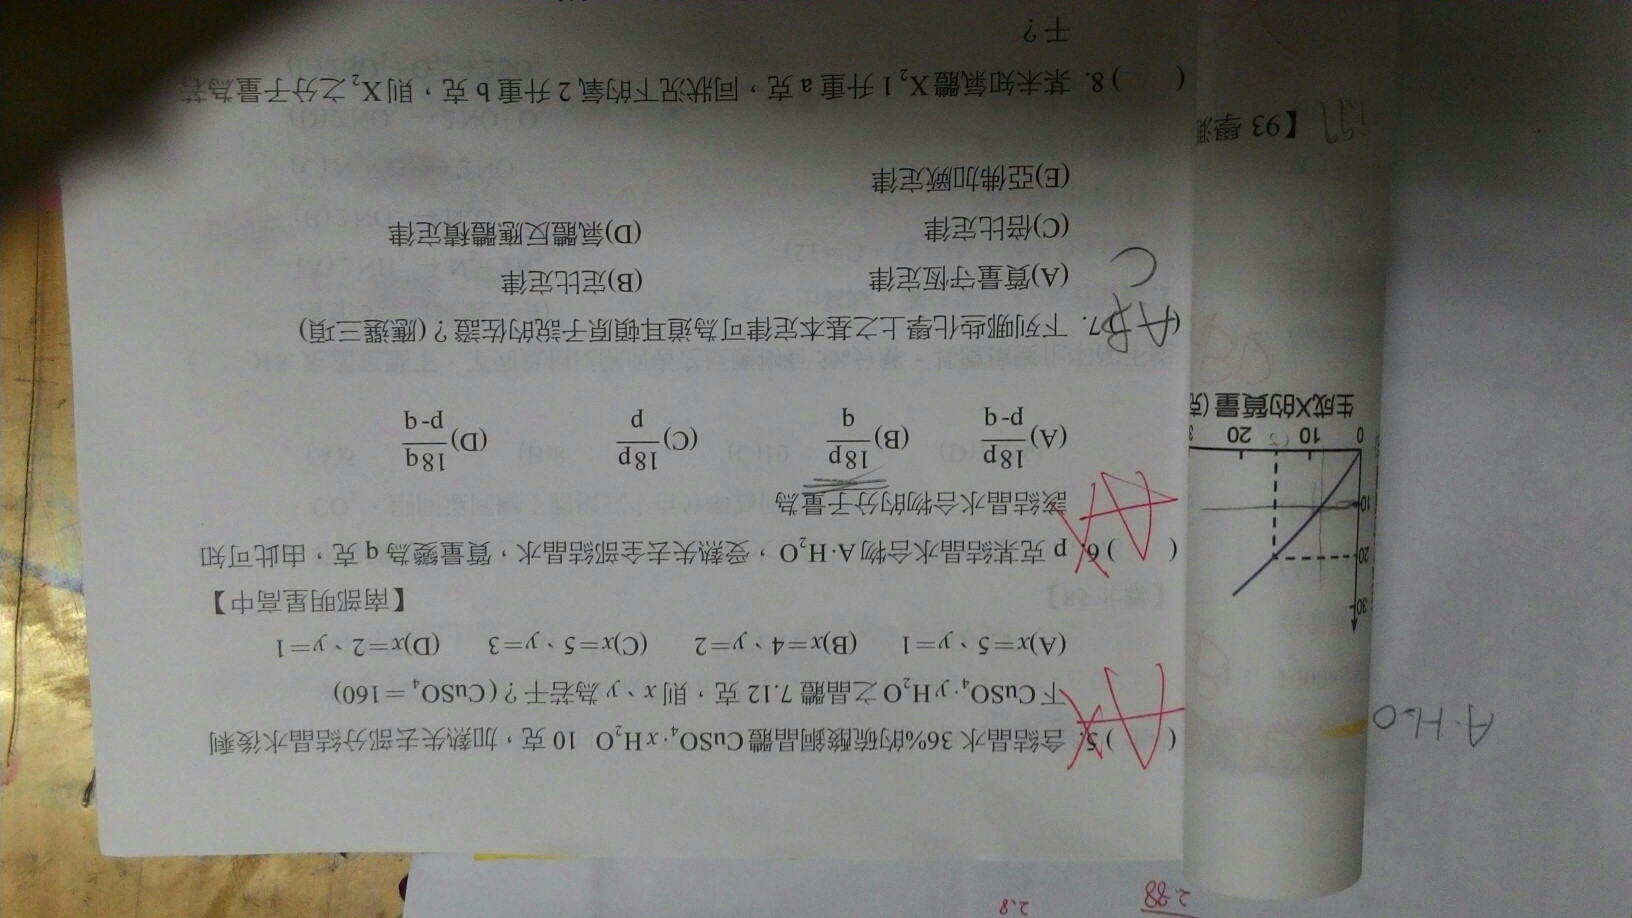 2.88
2.8
A·H₂O
( )5. 含結晶水 36%的硫酸銅晶體 CuSO₄·xH₂O 10 克，加熱失去部分結晶水後剩
下 CuSO₄·yH₂O 之晶體 7.12 克，則 x、y 為若干？(CuSO₄＝160)
(A)x＝5、y＝1 (B)x＝4、y＝2 (C)x＝5、y＝3 (D)x＝2、y＝1
【南部明星高中】
( )6. p 克某結晶水合物 A·H₂O，受熱失去全部結晶水，質量變為 q 克，由此可知
該結晶水合物的分子量為
(A)18p/p-q (B)18p/q (C)18p/p (D)18q/p-q
(AB
C
7. 下列哪些化學上之基本定律可為道耳頓原子說的佐證？(應選三項)
(A)質量守恆定律 (B)定比定律
(C)倍比定律 (D)氣體反應體積定律
(E)亞佛加厥定律
( )8. 某未知氣體 X₂ 1 升重 a 克，同狀況下的氧 2 升重 b 克，則 X₂之分子量為若
干？
30
20
10
0 10 20
生成X的質量(克
【93 學測